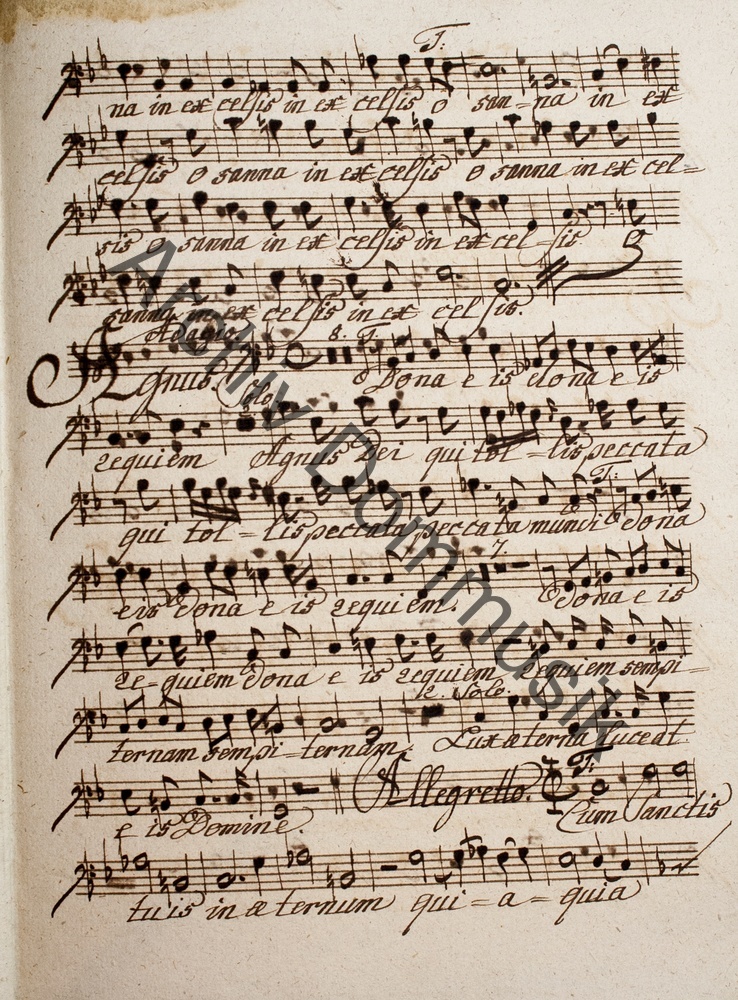 T:
na in ex celsis in ex celsis o san=na in ex
celsis O sanna in ex celsis O sanna in ex cel=
sis O sanna in ex celsis in ex cel=sis O
sanna in ex celsis in ex celsis.
Adagio. 8. T.
Agnus. Solo Dona e is dona e is
requiem Agnus Dei qui tol=lis peccata
T:
qui tol=lis peccata peccata mundi dona
7.
eis dona e is requiem. dona e is
re=quiem dona e is requiem requiem sempi=
12. Solo.
ternam sempi=ternam. Lux æterna luceat
Allegretto. T:
e is Domine. Cum Sanctis
tuis in æternum qui=a=quia
Archiv Dommusik